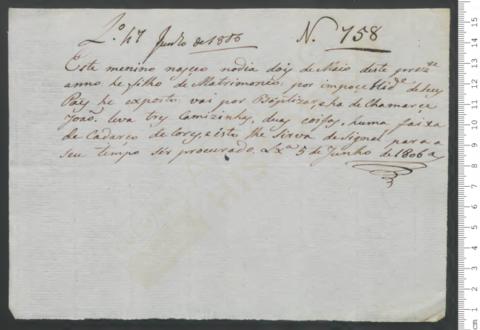 L.º 47 Junho de 1806 N. 758
Este menino nasçeo no dia dois de Maio deste prez.te
anno he filho de Matrimoneo, por impocebelid.e de seus
Pays he exposto vai por Baptizar, ha de Chamarçe
João. leva tres Camizinhas, duas coifas, huma faixa
de Cadarço de cores, e isto lhe sirva de Signal para a
seu tempo ser procurado. Lx.a 5 de Junho de 1806 a.